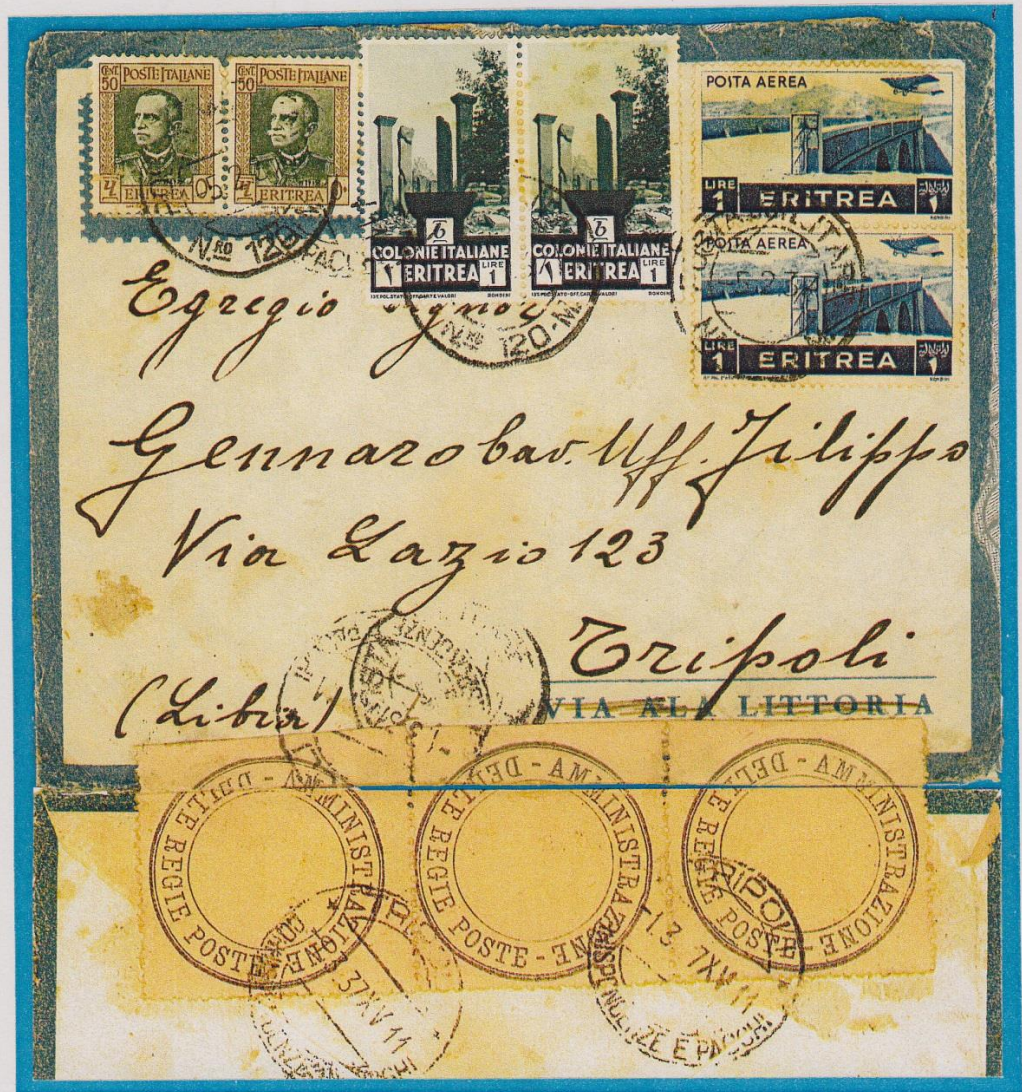 CENT. 50 POSTE ITALIANE
ERITREA
CENT. 50 POSTE ITALIANE
ERITREA
COLONIE ITALIANE
ERITREA LIRE 1
IST. POL. STATO-OFF. CARTE VALORI
COLONIE ITALIANE
ERITREA LIRE 1
IST. POL. STATO-OFF. CARTE VALORI
POSTA AEREA
LIRE 1 ERITREA
POSTA AEREA
LIRE 1 ERITREA
NRO 120
NRO 120-M
Egregio Signor
Gennaro Cav. Uff. Filippo
Via Lazio 123
Tripoli
(Libia)
VIA ALA LITTORIA
AMMINISTRAZIONE - DELLE REGIE POSTE -
AMMINISTRAZIONE - DELLE REGIE POSTE -
AMMINISTRAZIONE - DELLE REGIE POSTE -
37 XV 11
TRIPOLI
-1.3 7 XV 11
CORRISPONDENZE E PACCHI